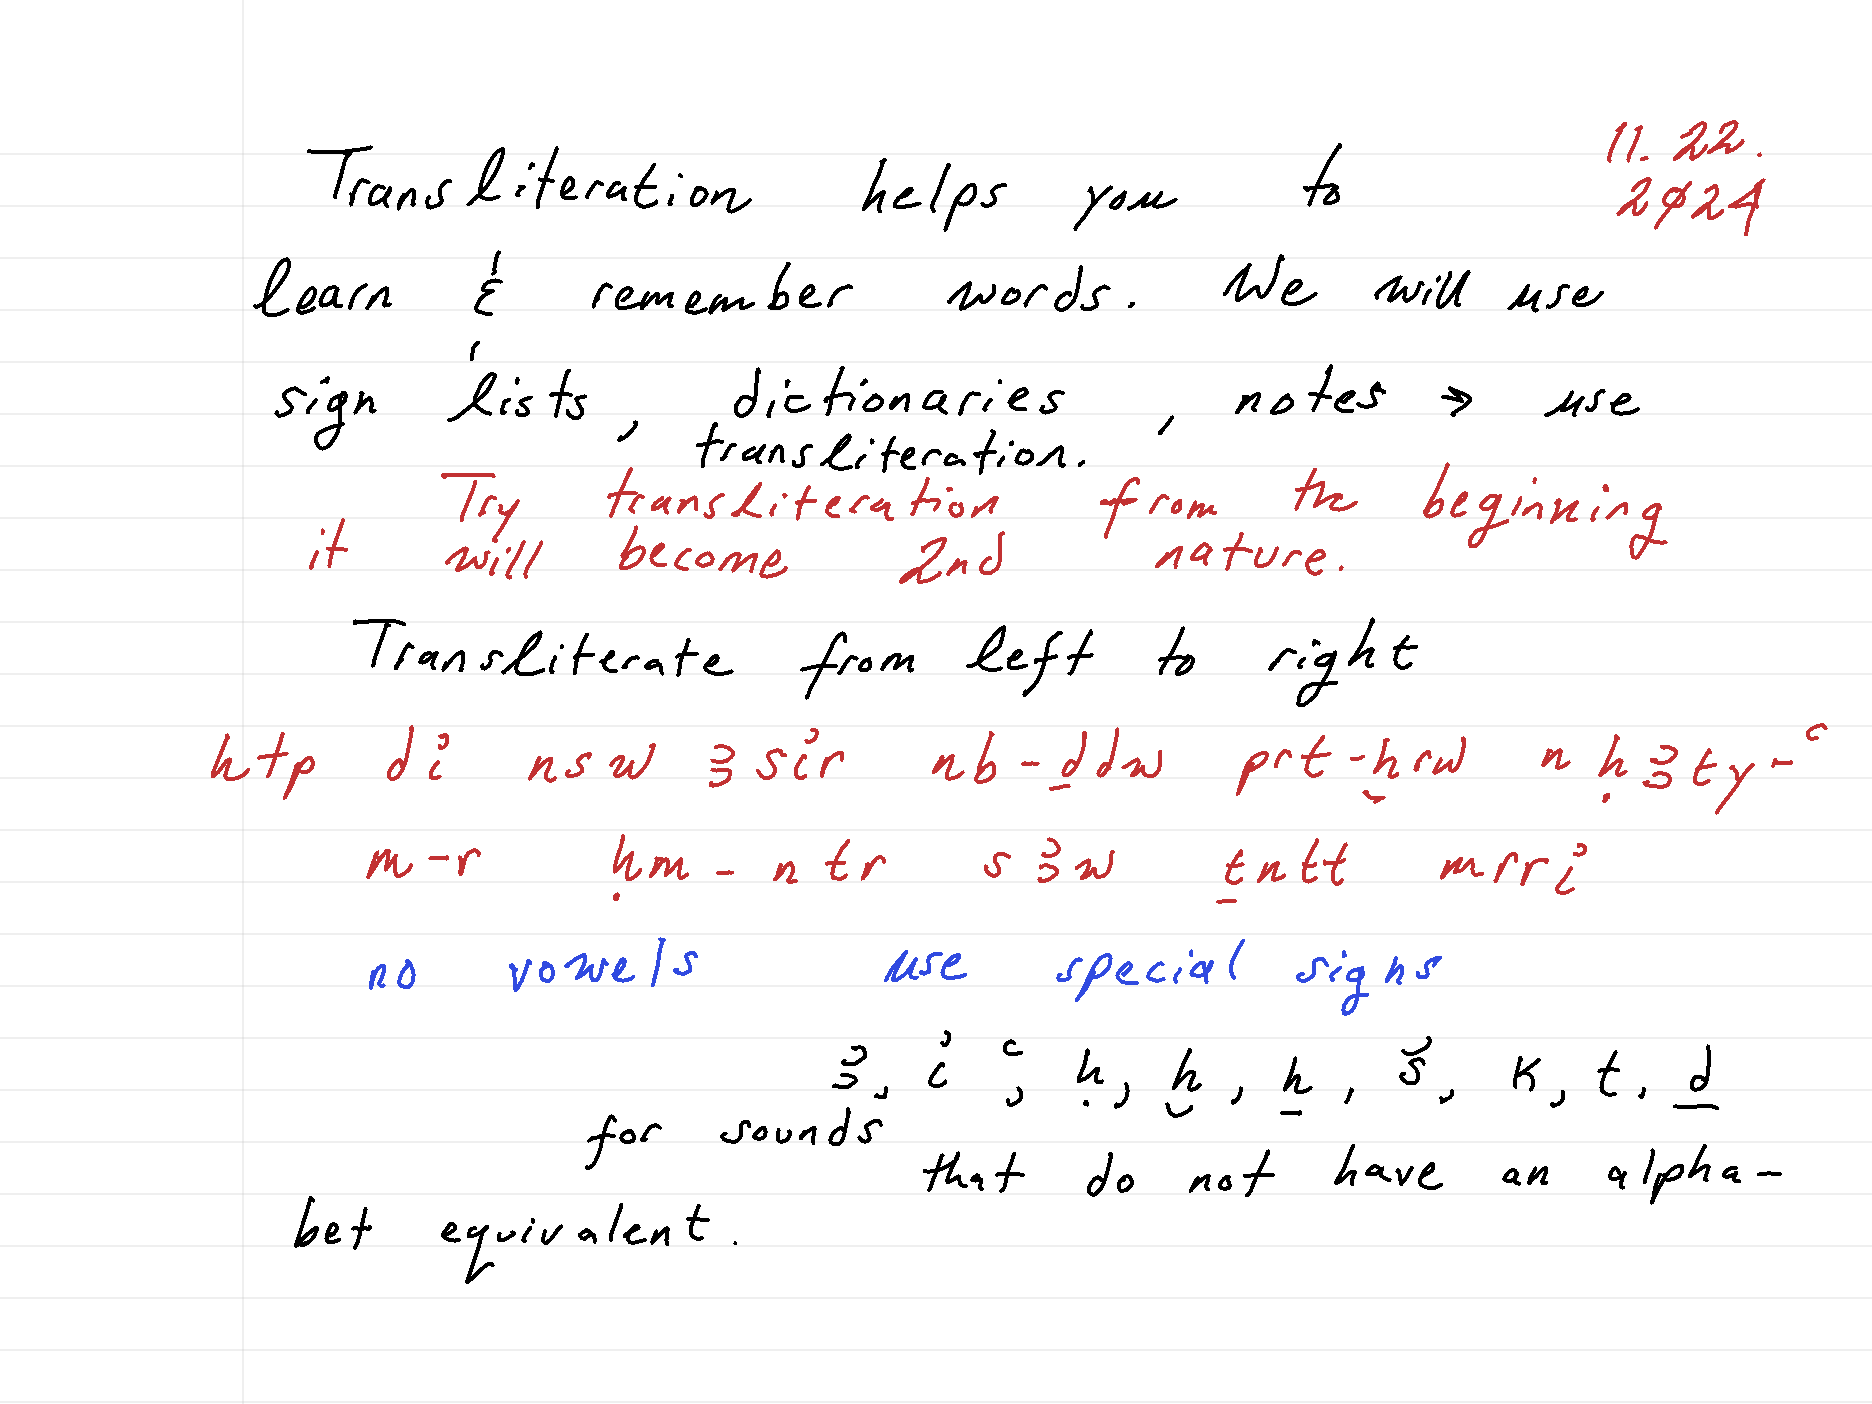 11. 22.
2024
Transliteration helps you to
learn & remember words. We will use
sign lists, dictionaries, notes → use
transliteration.
Try transliteration from the beginning
it will become 2nd nature.
Transliterate from left to right
htp dỉ nsw ꜣsỉr nb-ḏdw prt-ḫrw n ḥꜣty-ꜥ
m-r ḥm-ntr sꜣw ṯntt mrrỉ
no vowels use special signs
ꜣ, ỉ ꜥ, ḥ, ḫ, ẖ, š, k, t, ḏ
for sounds
that do not have an alpha-
bet equivalent.